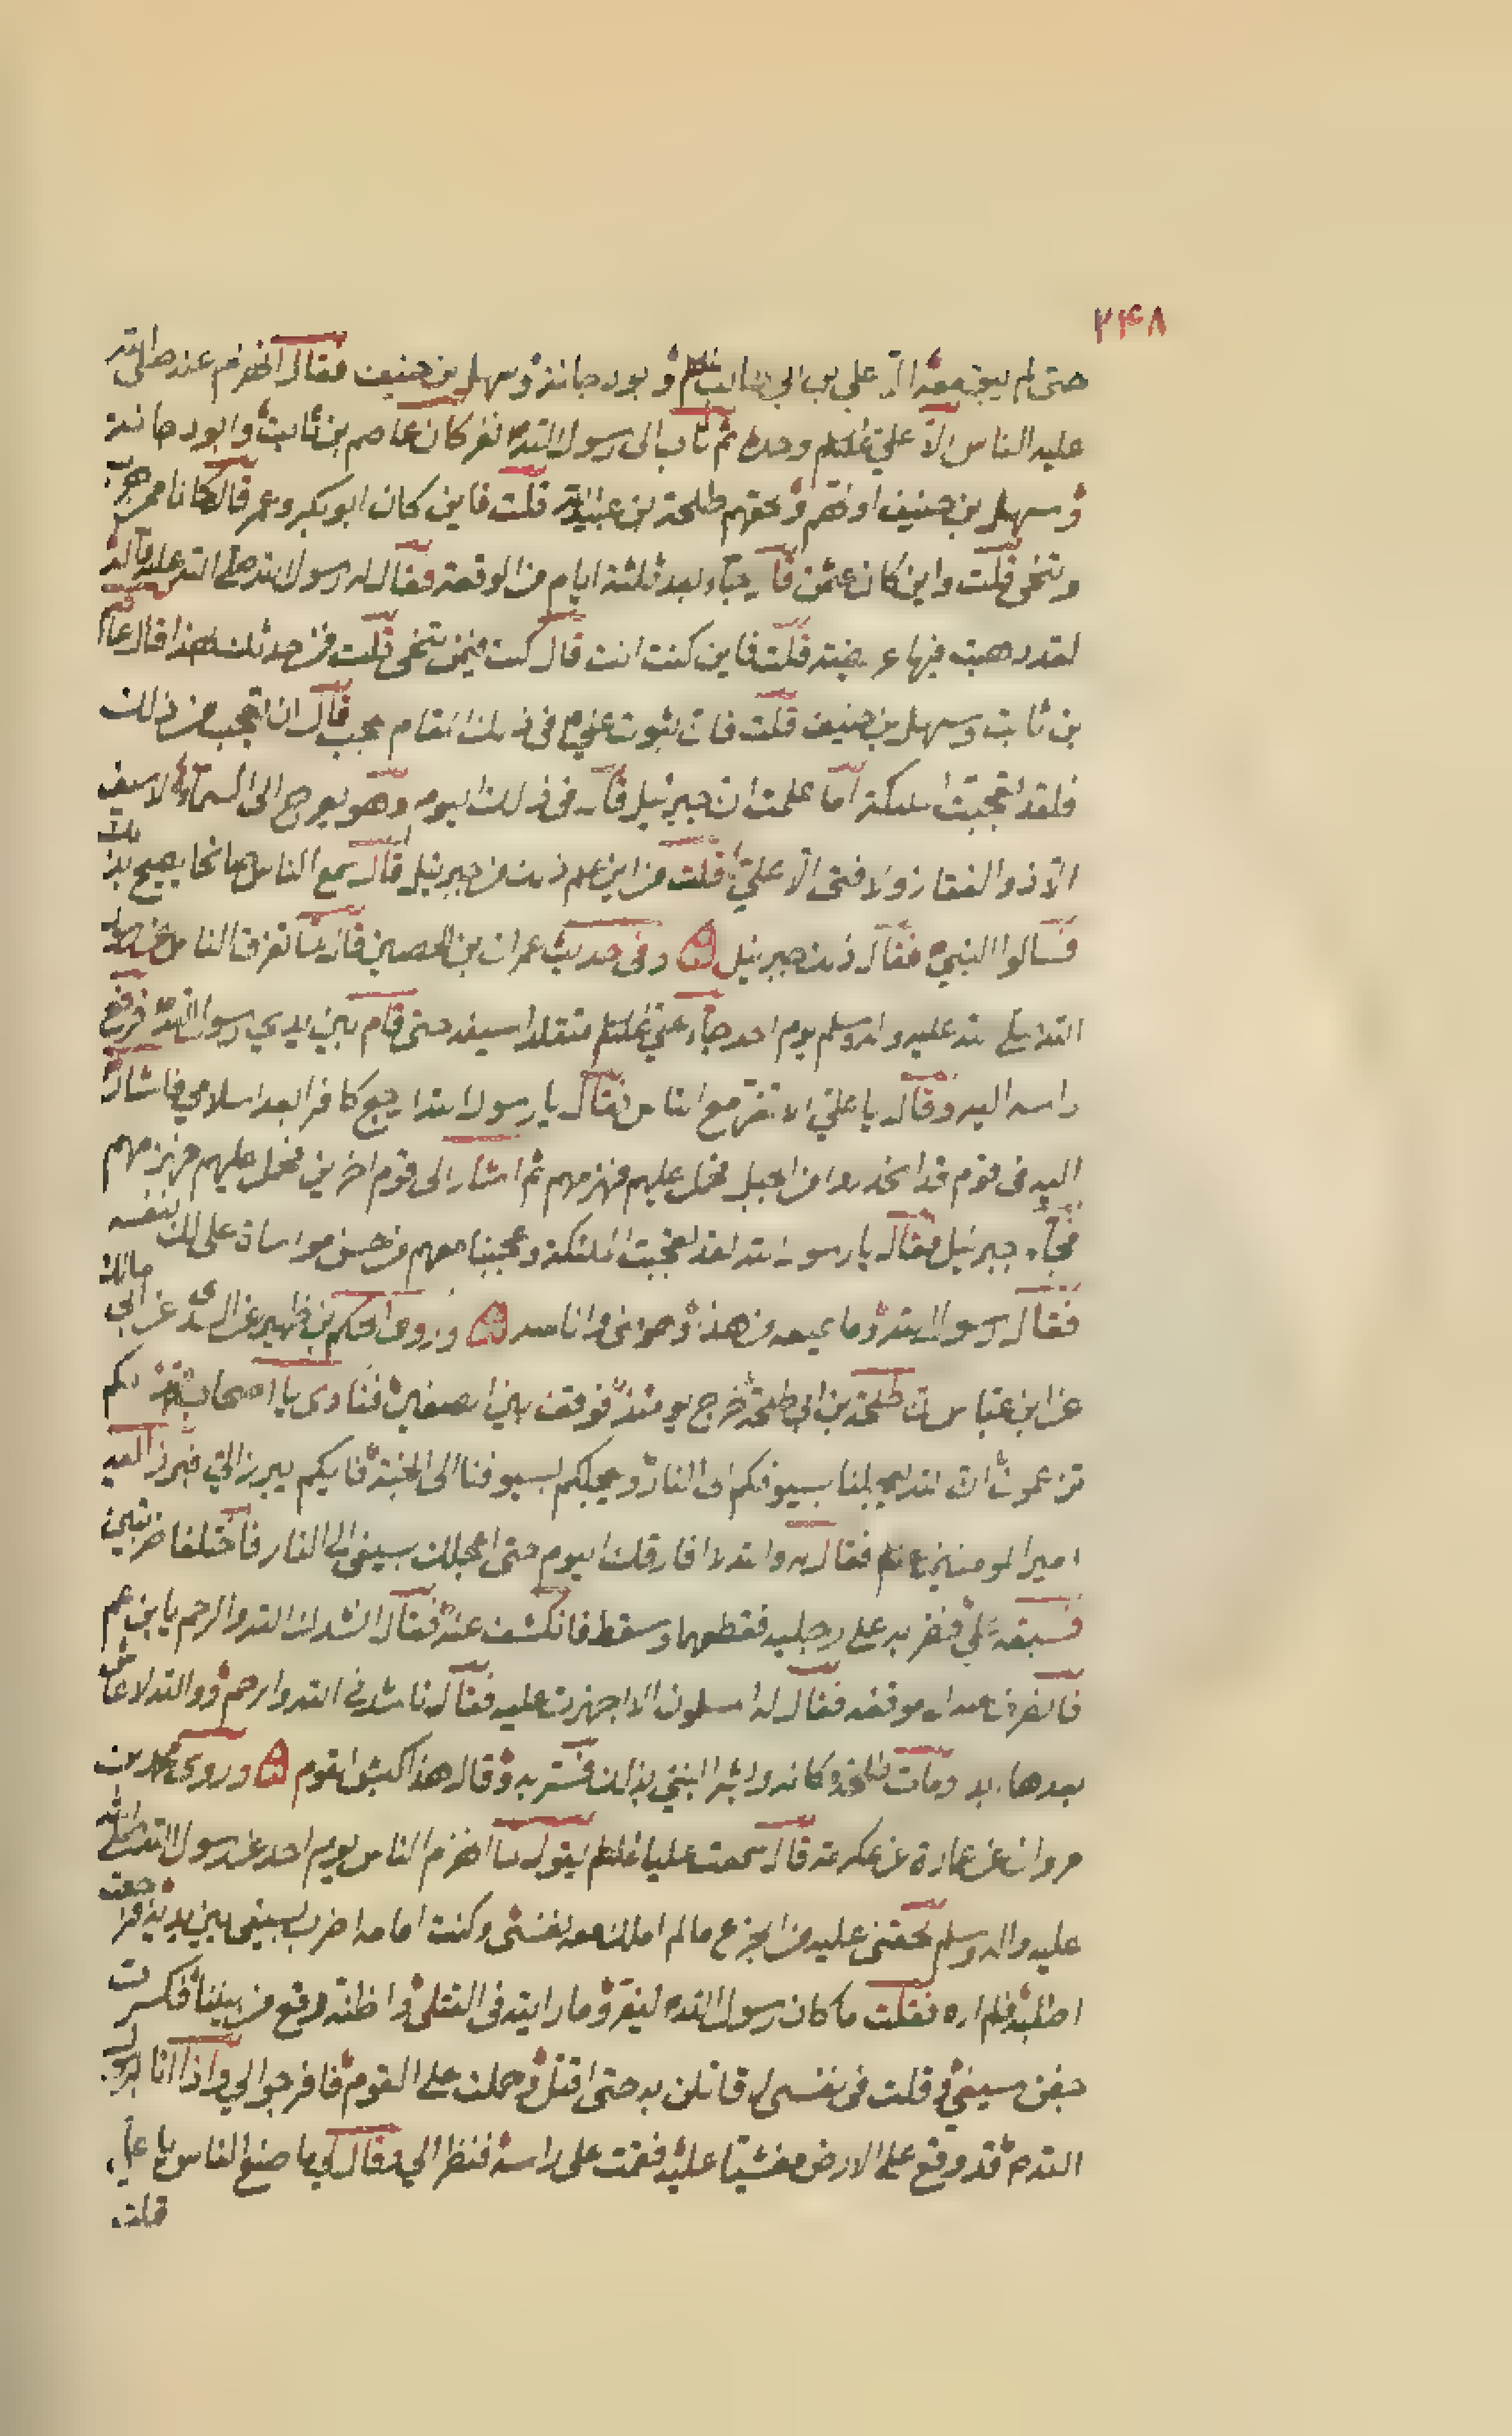 ۲۴۸
حتى لم يبق معه الا علي بن ابي طالب علیلم و ابو دجانة و سهل بن حنيف فقال انهزم عنه صلى الله
عليه الناس الا علي علیلم وحده ثم ثاب الى رسول الله نفر كان عاصم بن ثابت و ابو دجانة
و سهل بن حنيف اولهم و لحقهم طلحة بن عبيد الله قلت فاين كان ابو بكر و عمر قال كانا ممن هرب
و تنحى قلت و اين كان عثمن قال جاء بعد ثلثة ايام من الوقعة فقال له رسول الله صلى الله عليه و آله
لقد ذهبت فيها عريضة قلت فاين كنت انت قال كنت فيمن تنحى قلت فمن حدثك بهذا قال عاصم
بن ثابت و سهل بن حنيف قلت فان ثبوت علي في ذلك المقام عجب قال ان تعجب من ذلك
فلقد تعجبت الملئكة اما علمت ان جبرئيل قال في ذلك اليوم و هو يعرج الى السماء لا سيف
الا ذو الفقار و لا فتى الا علي قلت من اين علم ذلك من جبرئيل قال سمع الناس صائحا يصيح بذلك
فسالوا النبي فقال ذلك جبرئيل وفى حديث عمران بن الحصين قال لما تفرق الناس عن رسول
الله صلى الله عليه واله وسلم يوم احد جاء علي علیلم متقلدا سيفه حتى قام بين يدي رسول الله فرفع
راسه اليه وقال يا علي لم لا تفر مع الناس فقال يا رسول الله ارجع كافرا بعد اسلامي فاشار
اليه في قوم قد انحدروا من الجبل فحمل عليهم فهزمهم ثم اشار الى قوم اخرين فحمل عليهم فهزمهم
فجاء جبرئيل فقال يا رسول الله لقد تعجبت الملئكة وعجبنا معهم من حسن مواساة علي لك بنفسه
فقال رسول الله و ما يمنعه من هذا و هو مني وانا منه و روى الحكم بن ظهير عن السدي عن ابي مالك
عن ابن عباس ان طلحة بن ابي طلحة خرج يومئذ فوقف بين الصفين فنادى يا اصحاب محمد انكم
تزعمون ان الله يعجلنا بسيوفكم الى النار و يعجلكم بسيوفنا الى الجنة فايكم يبرز الي فبرز اليه
امير المومنين علیلم فقال له والله لا افارقك اليوم حتى اعجلك بسيفي الى النار فاختلفا ضربتين
فسبقه علي فضربه على رجليه فقطعهما و سقط فانكشف عنه فقال انشدك الله والرحم يا بن عم
فانصرف عنه الى موقفه فقال له المسلمون الا اجهزت عليه فقال ناشدني الله والرحم و والله لا عاش
بعدها ابدا ومات طلحة في مكانه و بشر النبي بذلك فسر به وقال هذا كبش القوم وروى محمد بن
مروان عن عمارة عن عكرمة قال سمعت عليا علیلم يقول لما انهزم الناس يوم احد عن رسول الله صلى الله
عليه واله وسلم لحقني عليه من الجزع ما لم املك معه نفسي وكنت امامه اضرب بسيفي بين يديه فرجعت
اطلبه فلم اره فقلت ما كان رسول الله ليفر و ما رايته في القتلى و اظنه رفع من بيننا فكسرت
جفن سيفي و قلت في نفسي لاقاتلن به حتى اقتل و حملت على القوم فافرجوا لي و اذا انا برسول
الله قد وقع على الارض مغشيا عليه فقمت على راسه فنظر الي وقال لي ما صنع الناس يا علي
قلت